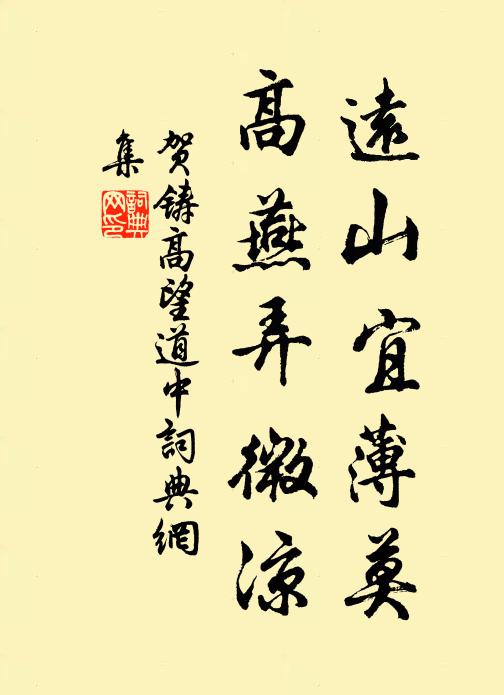 遠山宜薄莫
高燕弄微涼
賀鑄高望道中詞典網
集
詞典
网印